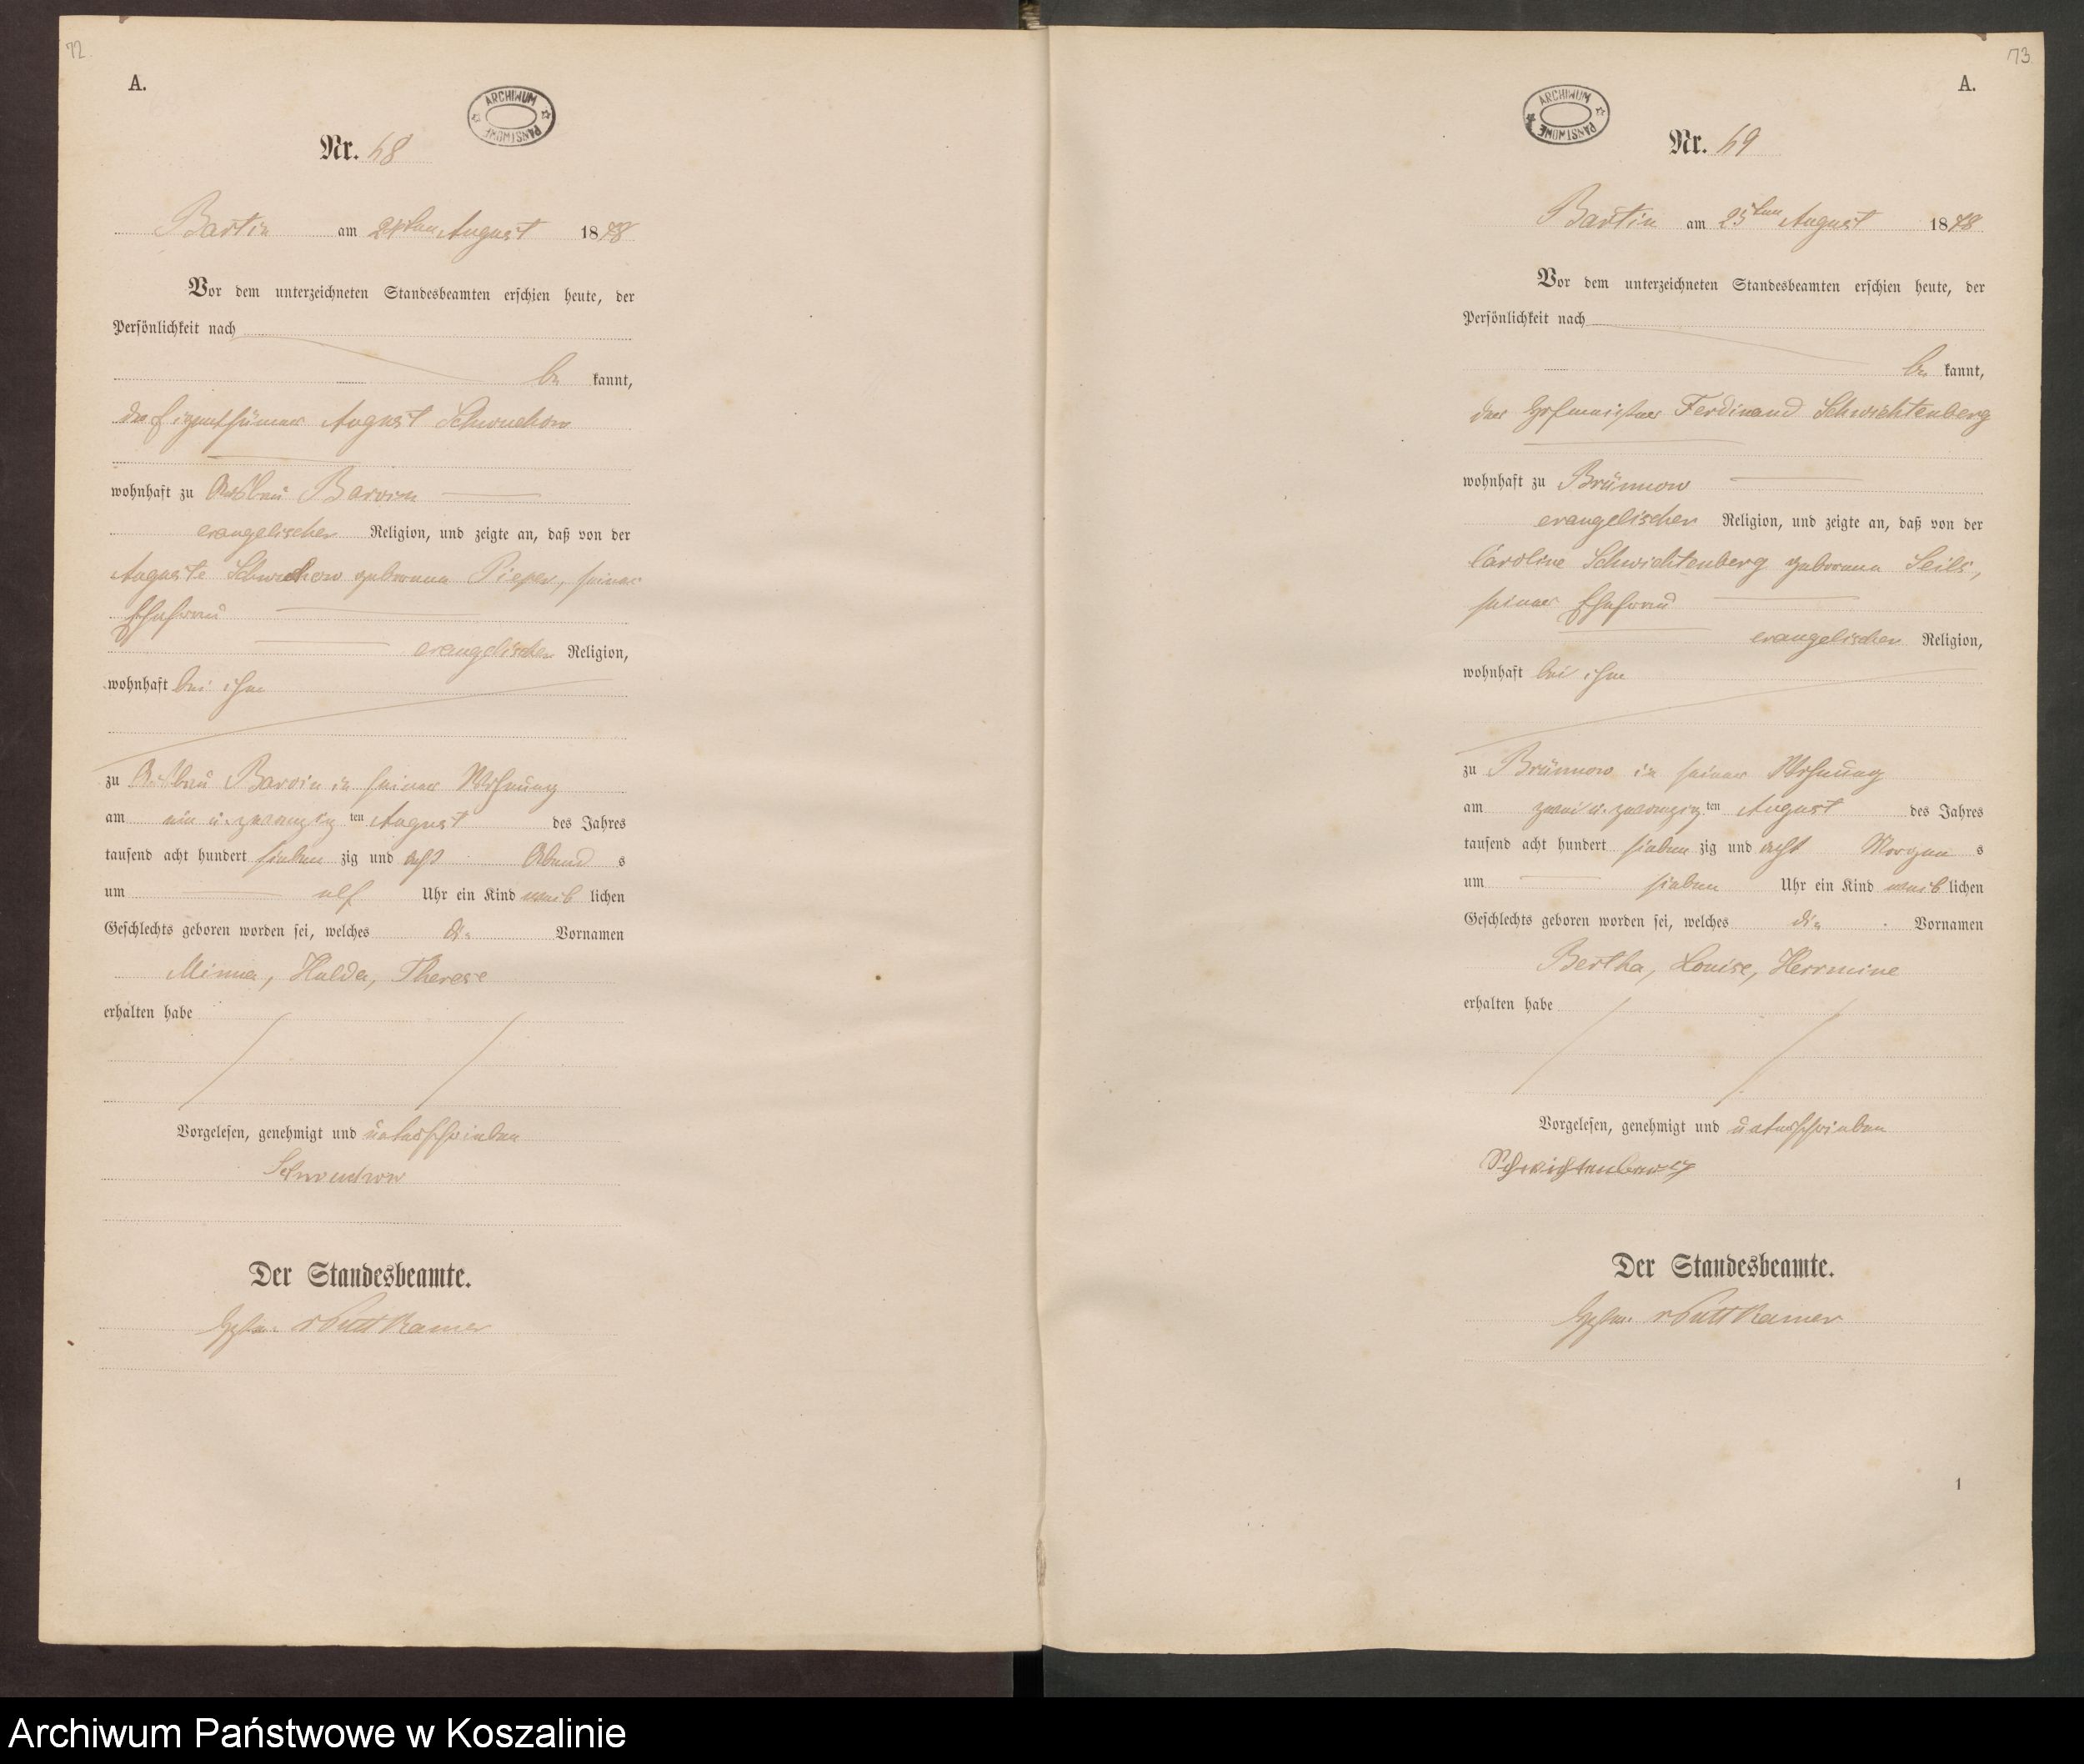 72.
A.
ARCHIWUM PAŃSTWOWE
Nr. 68
Bartin am 24ten August 1878
Vor dem unterzeichneten Standesbeamten erschien heute, der
Persönlichkeit nach
be kannt,
der Eigenthümer August Schwuchow
wohnhaft zu Ausbau Barvin
evangelischer Religion, und zeigte an, daß von der
Auguste Schwuchow geborene Pieper, seiner
Ehefrau
evangelischer Religion,
wohnhaft bei ihm
zu Ausbau Barvin in seiner Wohnung
am ein u. zwanzig ten August des Jahres
tausend acht hundert sieben zig und acht Abend s
um elf Uhr ein Kind weib lichen
Geschlechts geboren worden sei, welches die Vornamen
Minna, Hulda, Therese
erhalten habe
Vorgelesen, genehmigt und unterschrieben
Schwuchow
Der Standesbeamte.
v Puttkamer
73.
A.
ARCHIWUM PAŃSTWOWE
Nr. 69
Bartin am 25ten August 1878
Vor dem unterzeichneten Standesbeamten erschien heute, der
Persönlichkeit nach
be kannt,
der Hofmeister Ferdinand Schwichtenberg
wohnhaft zu Brünnow
evangelischer Religion, und zeigte an, daß von der
Caroline Schwichtenberg geborene Seils,
seiner Ehefrau
evangelischer Religion,
wohnhaft bei ihm
zu Brünnow in seiner Wohnung
am zwei u. zwanzig ten August des Jahres
tausend acht hundert sieben zig und acht Morgen s
um sieben Uhr ein Kind weib lichen
Geschlechts geboren worden sei, welches die Vornamen
Bertha, Louise, Herrmine
erhalten habe
Vorgelesen, genehmigt und unterschrieben
Schwichtenberg
Der Standesbeamte.
v Puttkamer
1
Archiwum Państwowe w Koszalinie